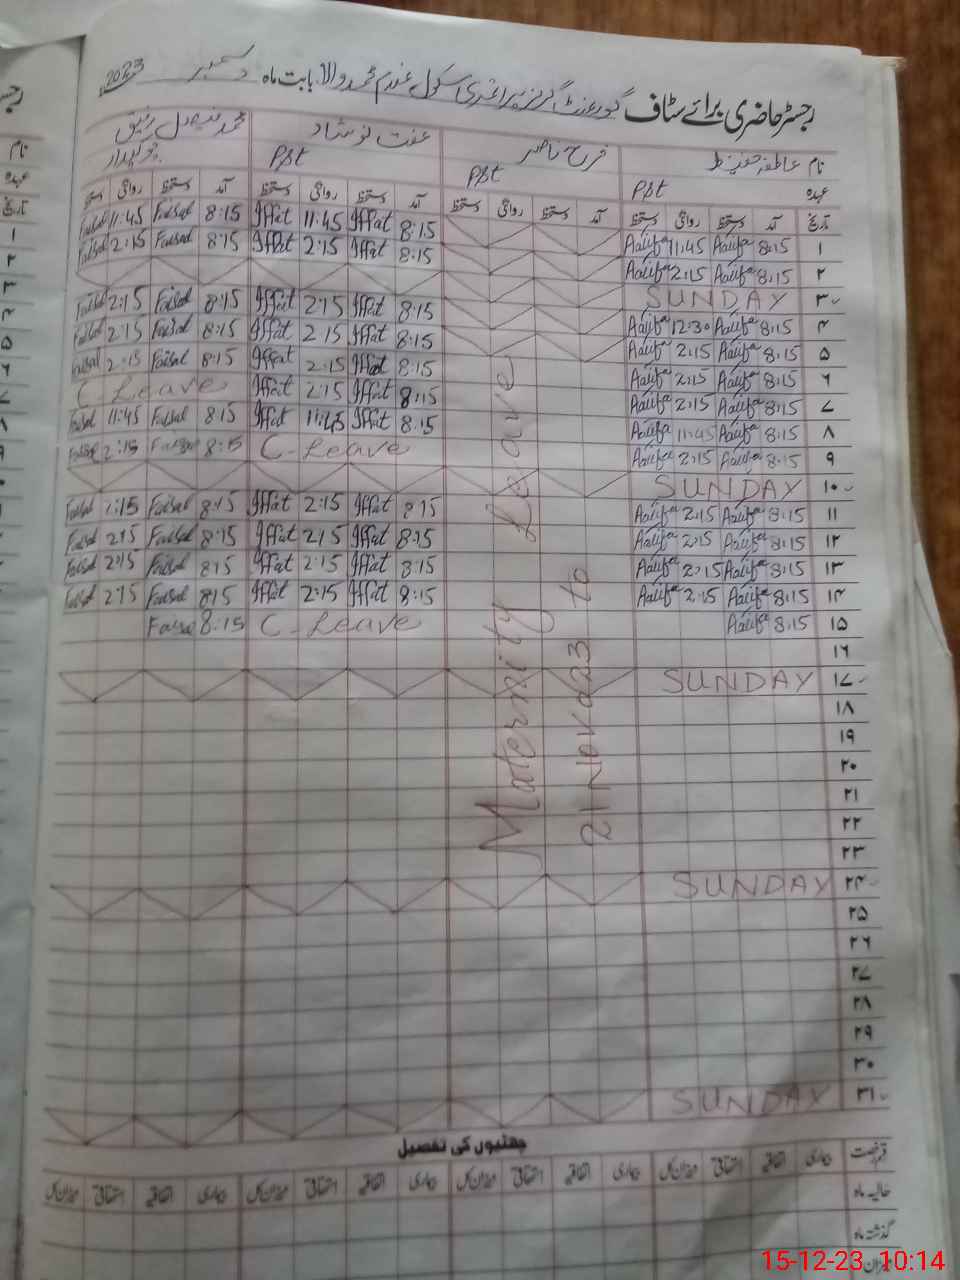 رجسٹر حاضری برائے سٹاف گورنمنٹ گرلز پرائمری سکول بابت ماہ دسمبر 2023
نام عاطفہ حفیظ فرح ناصر عفت نوشاد محمد فیصل رفیق
عہدہ PST PST PST چوکیدار
تاریخ آمد دستخط روانگی دستخط آمد دستخط روانگی دستخط آمد دستخط روانگی دستخط آمد دستخط روانگی دستخط
۱ 8:15 Aatifa 11:45 Aatifa 8:15 Iffat 11:45 Iffat 8:15 Faisal 11:45 Faisal
۲ 8:15 Aatifa 2:15 Aatifa 8:15 Iffat 2:15 Iffat 8:15 Faisal 2:15 Faisal
۳ SUNDAY
۴ 8:15 Aatifa 12:30 Aatifa 8:15 Iffat 2:15 Iffat 8:15 Faisal 2:15 Faisal
۵ 8:15 Aatifa 2:15 Aatifa 8:15 Iffat 2:15 Iffat 8:15 Faisal 2:15 Faisal
۶ 8:15 Aatifa 2:15 Aatifa 8:15 Iffat 2:15 Iffat 8:15 Faisal 2:15 Faisal
۷ 8:15 Aatifa 2:15 Aatifa 8:15 Iffat 2:15 Iffat C Leave
۸ 8:15 Aatifa 11:45 Aatifa 8:15 Iffat 11:45 Iffat 8:15 Faisal 11:45 Faisal
۹ 8:15 Aatifa 2:15 Aatifa C-Leave 8:15 Faisal 2:15 Faisal
۱۰ SUNDAY
۱۱ 8:15 Aatifa 2:15 Aatifa 8:15 Iffat 2:15 Iffat 8:15 Faisal 2:15 Faisal
۱۲ 8:15 Aatifa 2:15 Aatifa 8:15 Iffat 2:15 Iffat 8:15 Faisal 2:15 Faisal
۱۳ 8:15 Aatifa 2:15 Aatifa 8:15 Iffat 2:15 Iffat 8:15 Faisal 2:15 Faisal
۱۴ 8:15 Aatifa 2:15 Aatifa 8:15 Iffat 2:15 Iffat 8:15 Faisal 2:15 Faisal
۱۵ 8:15 Aatifa C-Leave 8:15 Faisal
۱۶
۱۷ SUNDAY
۱۸
۱۹
۲۰
۲۱
۲۲
۲۳
۲۴ SUNDAY
۲۵
۲۶
۲۷
۲۸
۲۹
۳۰
۳۱ SUNDAY
Maternity Leave
21 Nov 2023 to
چھٹیوں کی تفصیل
قسم رخصت بیماری اتفاقیہ استحقاقی میزان کل بیماری اتفاقیہ استحقاقی میزان کل بیماری اتفاقیہ استحقاقی میزان کل بیماری اتفاقیہ استحقاقی میزان کل
حالیہ ماہ
گذشتہ ماہ
میزان
15-12-23 10:14